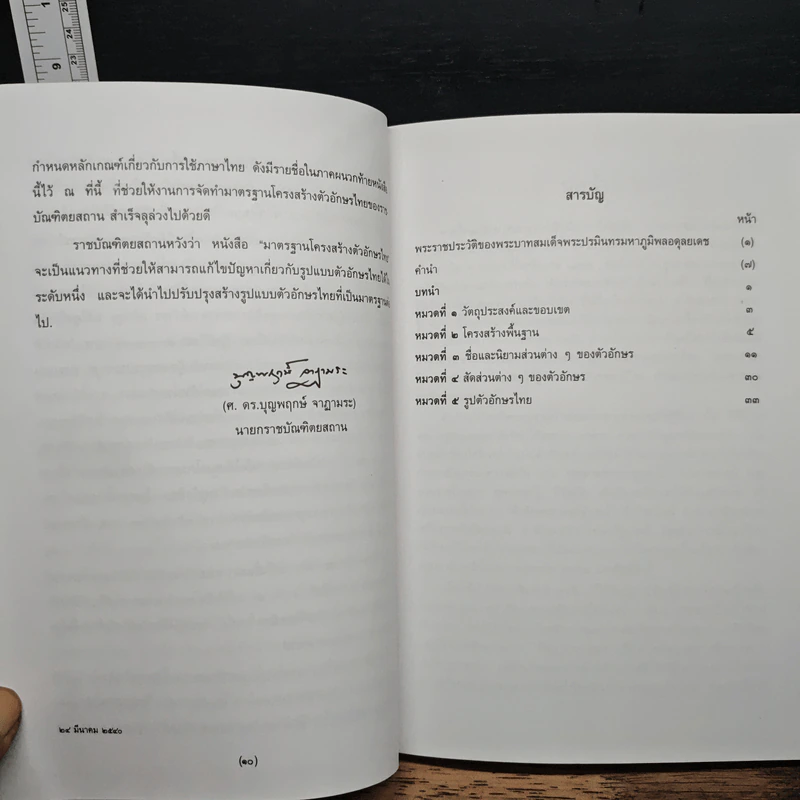 กำหนดหลักเกณฑ์เกี่ยวกับการใช้ภาษาไทย ดังมีรายชื่อในภาคผนวกท้ายหนังสือ
นี้ไว้ ณ ที่นี้ ที่ช่วยให้งานการจัดทำมาตรฐานโครงสร้างตัวอักษรไทยของราช
บัณฑิตยสถาน สำเร็จลุล่วงไปด้วยดี
ราชบัณฑิตยสถานหวังว่า หนังสือ "มาตรฐานโครงสร้างตัวอักษรไทย"
จะเป็นแนวทางที่ช่วยให้สามารถแก้ไขปัญหาเกี่ยวกับรูปแบบตัวอักษรไทยได้ใน
ระดับหนึ่ง และจะได้นำไปปรับปรุงสร้างรูปแบบตัวอักษรไทยที่เป็นมาตรฐาน
ไป.
(ศ. ดร.บุญพฤกษ์ จาฏามระ)
นายกราชบัณฑิตยสถาน
๒๔ มีนาคม ๒๕๔๐
(๑๐)
สารบัญ
หน้า
พระราชประวัติของพระบาทสมเด็จพระปรมินทรมหาภูมิพลอดุลยเดช (๑)
คำนำ (๗)
บทนำ ๑
หมวดที่ ๑ วัตถุประสงค์และขอบเขต ๓
หมวดที่ ๒ โครงสร้างพื้นฐาน ๕
หมวดที่ ๓ ชื่อและนิยามส่วนต่าง ๆ ของตัวอักษร ๑๑
หมวดที่ ๔ สัดส่วนต่าง ๆ ของตัวอักษร ๓๐
หมวดที่ ๕ รูปตัวอักษรไทย ๓๓
9
23
24
25